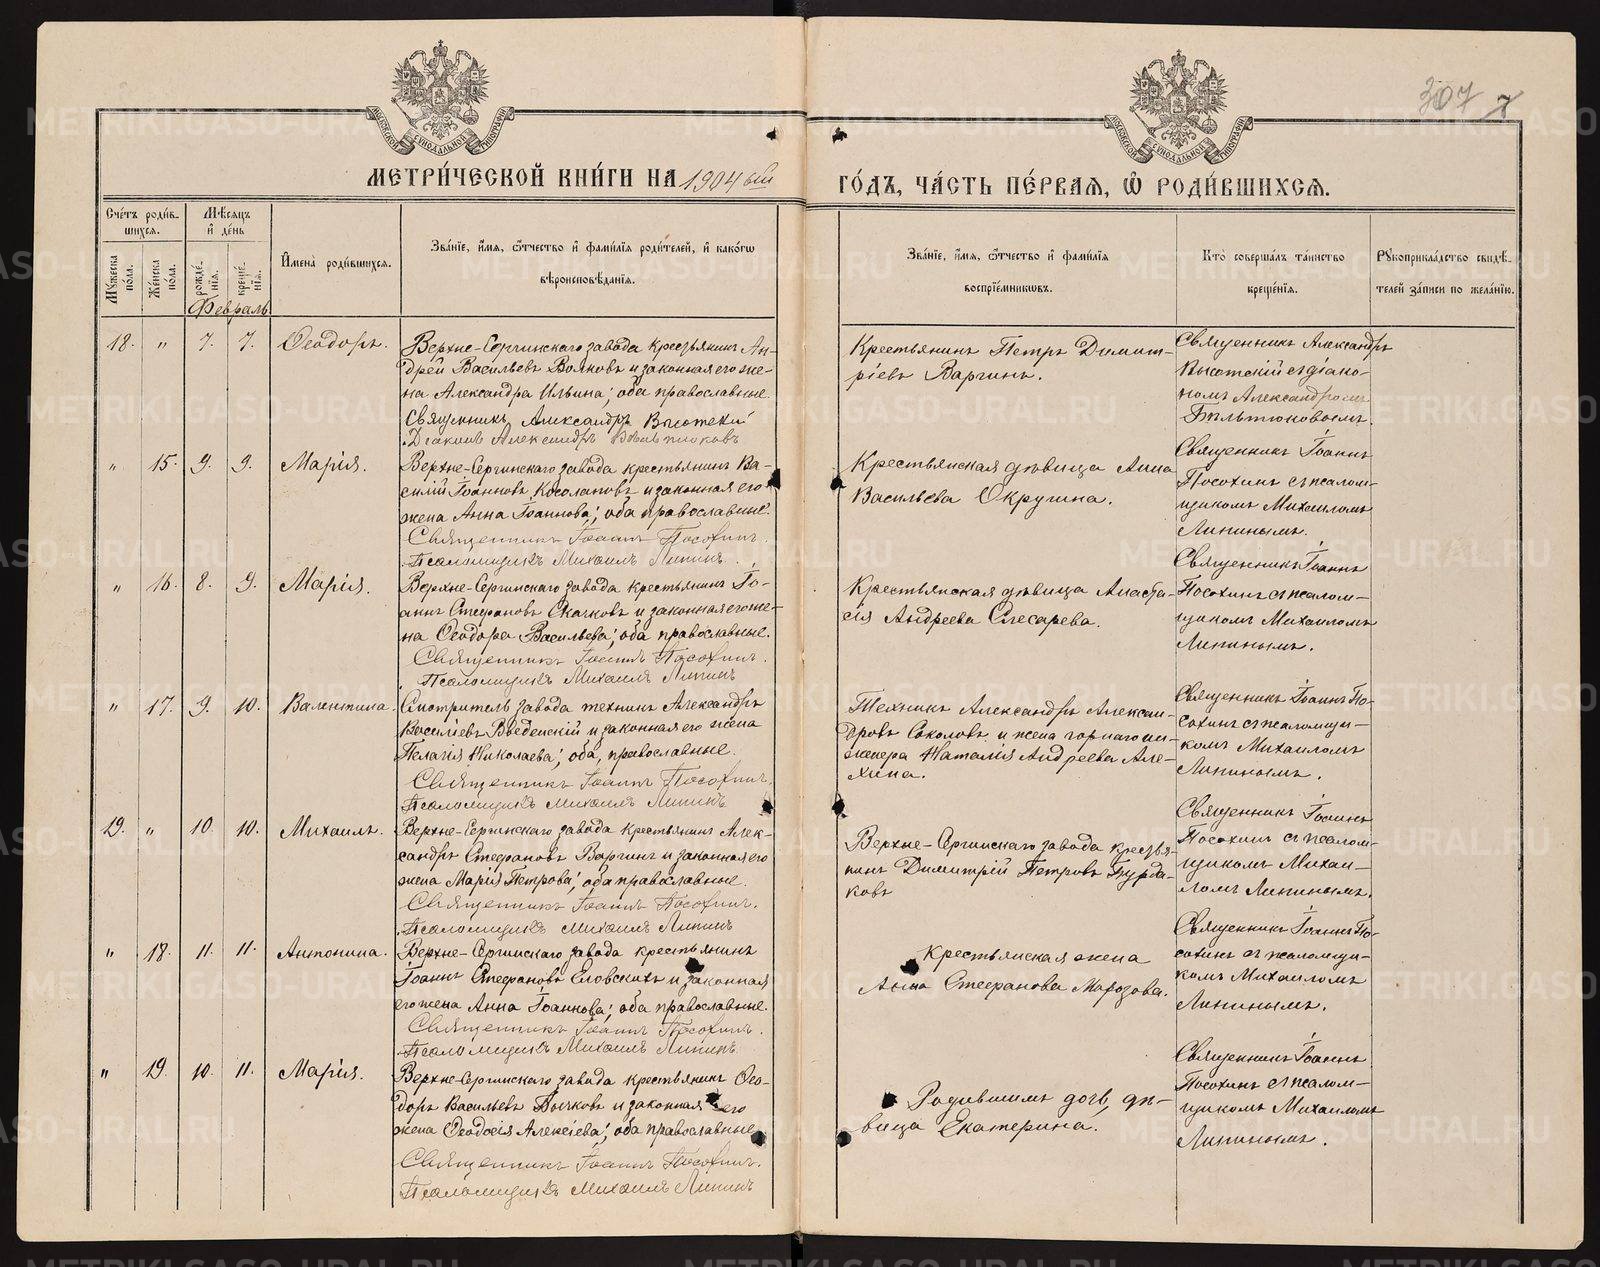 307 7
МОСКОВСКОЙ СѴНОДАЛЬНОЙ ТИПОГРАФІИ
МОСКОВСКОЙ СѴНОДАЛЬНОЙ ТИПОГРАФІИ
МЕТРИ́ЧЕСКОЙ КНИ́ГИ НА 1904 ый
ГО́ДЪ, ЧА́СТЬ ПЕ́РВАѦ, Ѡ҆ РОДИ́ВШИХСѦ.
Сче́тъ роди́в-
шихсѧ.
Мꙋ́жеска по́ла.
Же́нска по́ла.
Мѣ́сѧцъ и҆ де́нь
рожде́-нїѧ.
креще́-нїѧ.
Февраль
И҆мена̀ роди́вшихсѧ.
Зва́нїе, и҆́мѧ, ѻ҆́тчество и҆ фами́лїѧ роди́телей, и҆ како́гѡ
вѣроисповѣ́данїѧ.
Зва́нїе, и҆́мѧ, ѻ҆́тчество и҆ фами́лїѧ
воспрїе́мникѡвъ.
Кто̀ соверша́лъ та́инство
креще́нїѧ.
Рꙋкоприкла́дство свидѣ́-
телей за́писи по жела́нїю.
18. " 7. 7. Ѳеодоръ.
Верхне-Сергинскаго завода крестьянинъ Ан-
дрей Васильевъ Волковъ и законная его же-
на Александра Ильина; оба православные.
Священникъ Александръ Высотскій
Діаконъ Александръ
Крестьянинъ Петръ Димит-
ріевъ Варгинъ.
Священникъ Александръ
Высотскій съ діако-
номъ Александромъ
" 15. 9. 9. Марія.
Верхне-Сергинскаго завода крестьянинъ Ва-
силій Іоанновъ Косолаповъ и законная его
жена Анна Іоаннова; оба православные.
Священникъ Іоаннъ Посохинъ.
Псаломщикъ Михаилъ Липинъ.
Крестьянская дѣвица Анна
Васильева Округина.
Священникъ Іоаннъ
Посохинъ съ псалом-
щикомъ Михаиломъ
Липинымъ.
" 16. 8. 9. Марія.
Верхне-Сергинскаго завода крестьянинъ Іо-
аннъ Стефановъ Скачковъ и законная его же-
на Ѳеодора Васильева; оба православные.
Священникъ Іоаннъ Посохинъ.
Псаломщикъ Михаилъ Липинъ
Крестьянская дѣвица Анаста-
сія Андреева Слесарева.
Священникъ Іоаннъ
Посохинъ съ псалом-
щикомъ Михаиломъ
Липинымъ.
" 17. 9. 10. Валентина.
Смотритель завода техникъ Александръ
Васильевъ Введенскій и законная его жена
Пелагія Николаева; оба православные.
Священникъ Іоаннъ Посохинъ.
Псаломщикъ Михаилъ Липинъ
Техникъ Александръ Алексан-
дровъ Соколовъ и жена горнаго ин-
женера Наталія Андреева Але-
хина.
Священникъ Іоаннъ По-
сохинъ съ псаломщи-
комъ Михаиломъ
Липинымъ.
19. " 10. 10. Михаилъ.
Верхне-Сергинскаго завода крестьянинъ Алек-
сандръ Стефановъ Варгинъ и законная его
жена Марія Петрова; оба православные.
Священникъ Іоаннъ Посохинъ.
Псаломщикъ Михаилъ Липинъ
Верхне-Сергинскаго завода крестья-
нинъ Димитрій Петровъ Бурда-
ковъ
Священникъ Іоаннъ
Посохинъ съ псалом-
щикомъ Михаи-
ломъ Липинымъ.
" 18. 11. 11. Антонина.
Верхне-Сергинскаго завода крестьянинъ
Іоаннъ Стефановъ Еловскихъ и законная
его жена Анна Іоаннова; оба православные.
Священникъ Іоаннъ Посохинъ.
Псаломщикъ Михаилъ Липинъ
Крестьянская жена
Анна Стефанова Морозова.
Священникъ Іоаннъ По-
сохинъ съ псаломщи-
комъ Михаиломъ
Липинымъ.
" 19. 10. 11. Марія.
Верхне-Сергинскаго завода крестьянинъ Ѳео-
доръ Васильевъ Бычковъ и законная его
жена Ѳеодосія Алексіева; оба православные.
Священникъ Іоаннъ Посохинъ.
Псаломщикъ Михаилъ Липинъ
Родившимъ дочь, дѣ-
вица Екатерина.
Священникъ Іоаннъ
Посохинъ съ псалом-
щикомъ Михаиломъ
Липинымъ.
METRIKI.GASO-URAL.RU